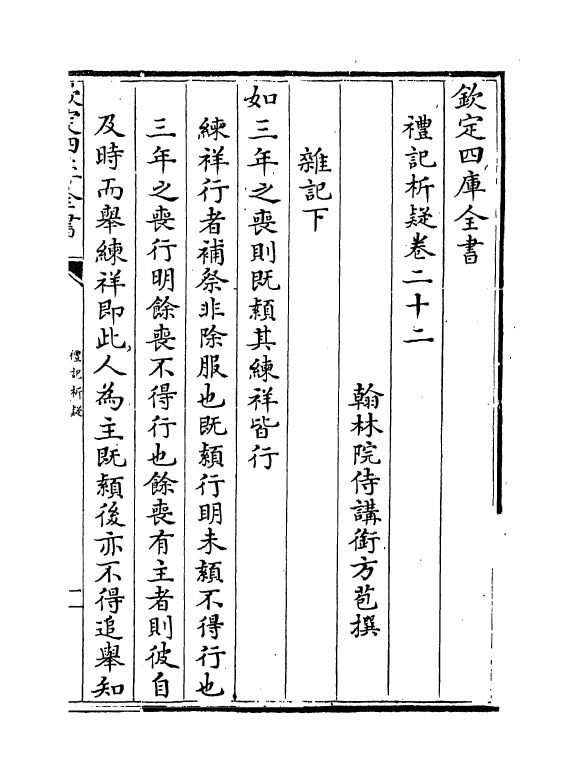 欽定四庫全書
禮記析疑卷二十二
翰林院侍講銜方苞撰
雜記下
如三年之喪則既顈其練祥皆行
練祥行者補祭非除服也既顈行明未顈不得行也
三年之喪行明餘喪不得行也餘喪有主者則彼自
及時而舉練祥即此人為主既顈後亦不得追舉知
欽定四庫全書
禮記析疑